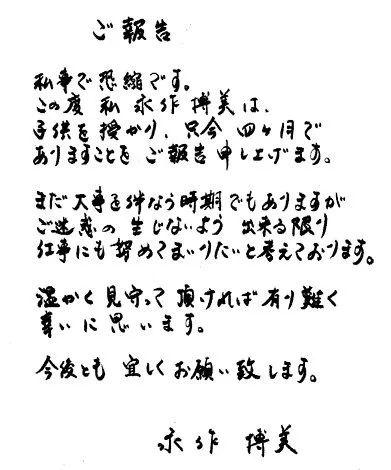 ご報告
私事で恐縮です。
この度 私 永作 博美は、
子供を授かり、只今 四ヶ月で
ありますことを ご報告申し上げます。
まだ大事を伴なう時期でもありますが
ご迷惑の 生じないよう 出来る限り
仕事にも 努めてまいりたいと考えております。
温かく 見守って 頂ければ 有り難く
幸いに 思います。
今後とも 宜しくお願い致します。
永作 博美